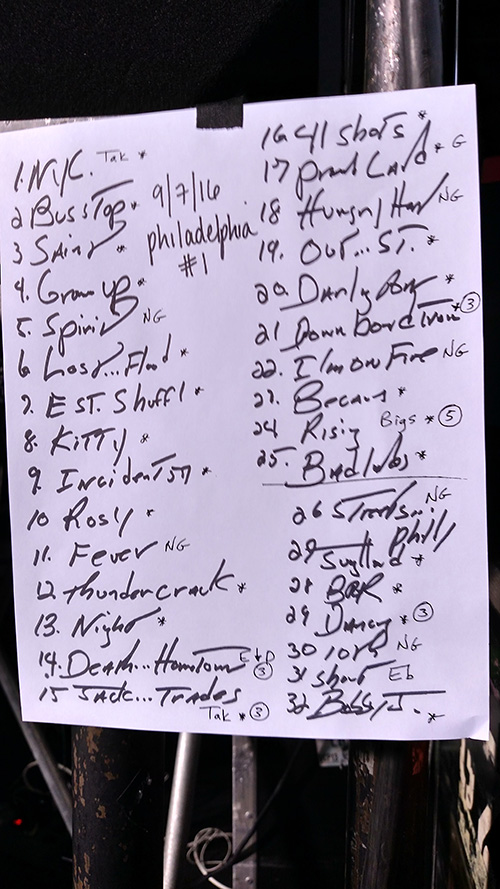 1. NYC. Tak *
2 Bus STop *
3 Saint *
4. Grown up *
5. Spirit NG
6 Lost...Flood *
7. E ST. Shuffl *
8. KiTTy *
9. Incident 57 *
10 Rosy *
11. Fever NG
12 Thundercrack *
13. Night *
14. Death...Hometown E↓D ③
15 Jack...Trades
Tak * ③
9/7/16
philadelphia
#1
16 41 Shots *
17 Promt Land * G
18 Hungry Hart NG
19. OUT...ST. *
20. Darly Boy *
21 Down bound Train * ③
22. I'm On Fire NG
23. Becaus *
24 Rising Bigs * ⑤
25. Badlnds *
26 Streets... NG
Philly
27 Jungland *
28 B2R *
29 Dancing * ③
30 10th NG
31 Shout Eb
32. Bobby J. *